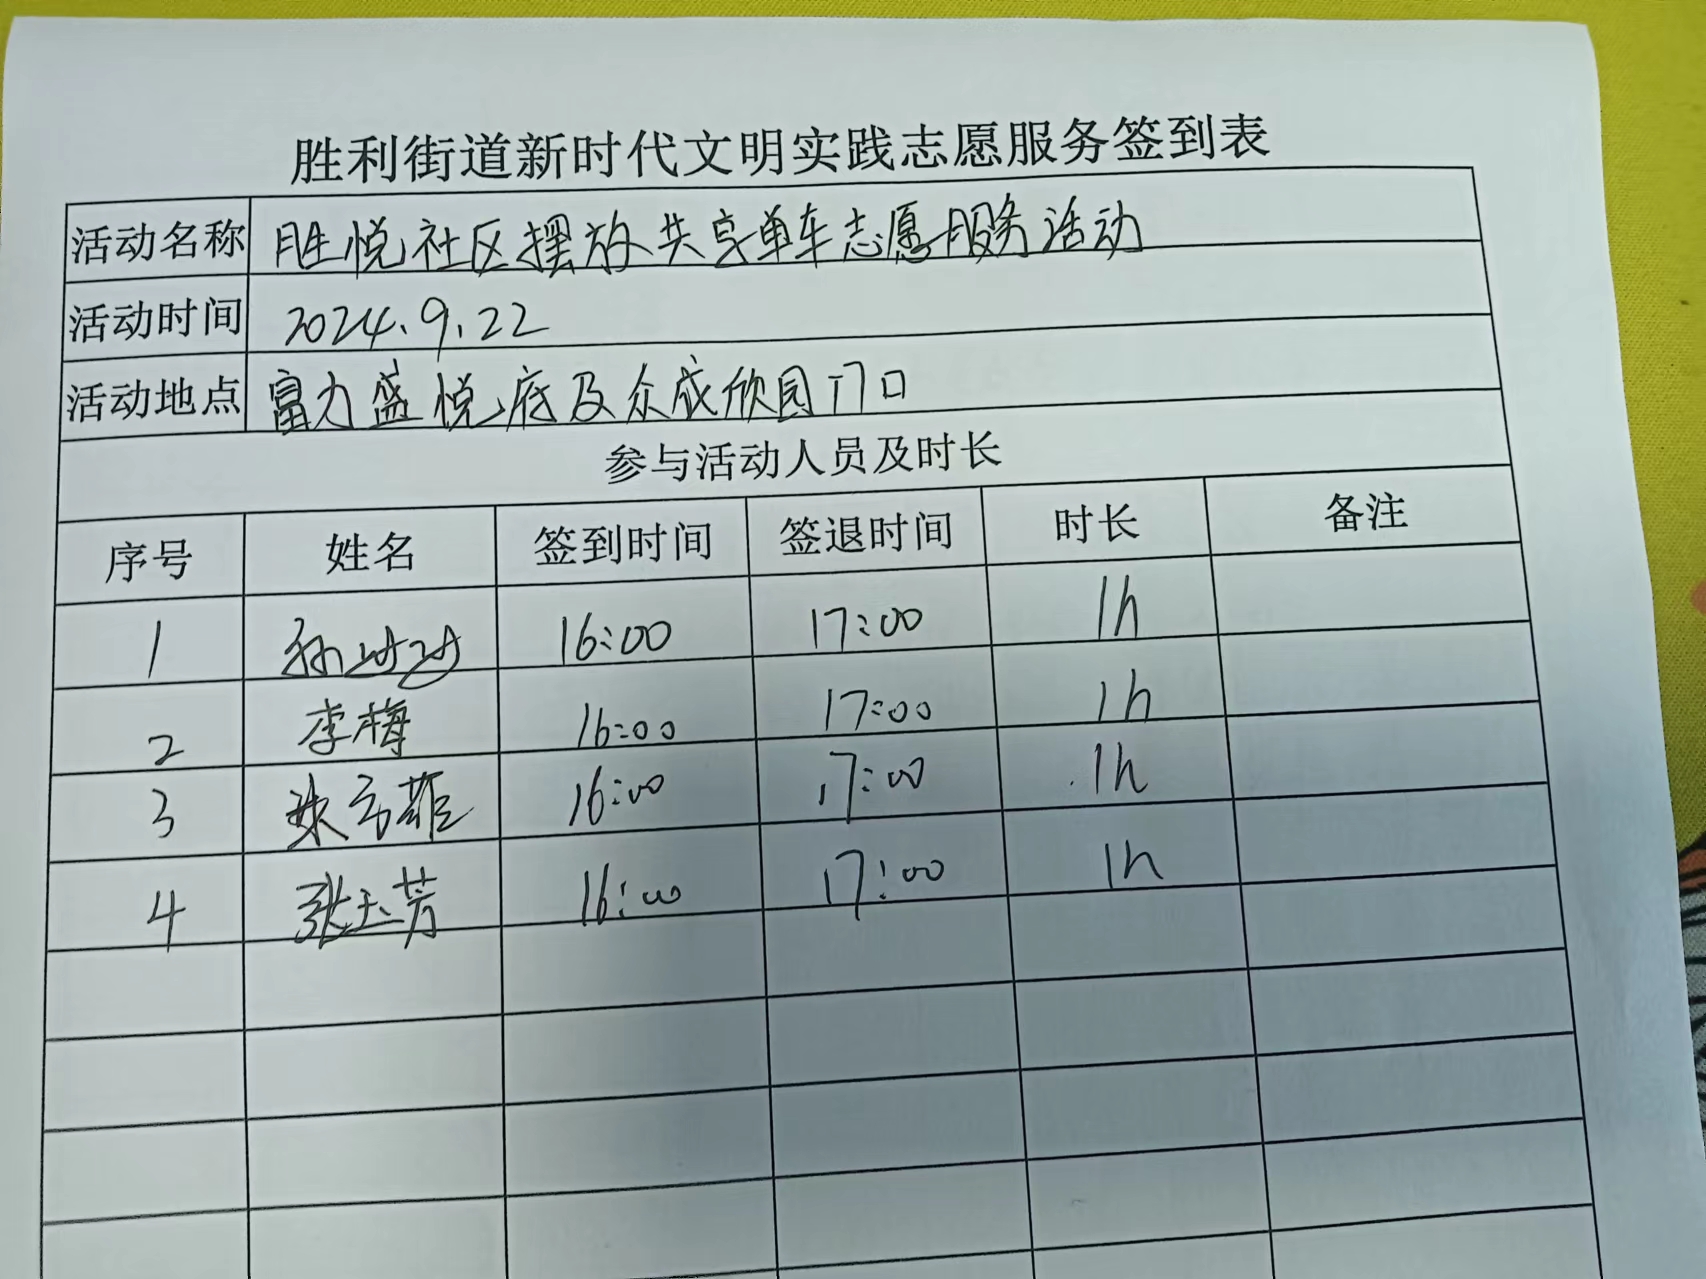 胜利街道新时代文明实践志愿服务签到表
活动名称 胜悦社区摆放共享单车志愿服务活动
活动时间 2024.9.22
活动地点 富力盛悦底及众成欣园门口
参与活动人员及时长
序号 姓名 签到时间 签退时间 时长 备注
1 孙 16:00 17:00 1h
2 李梅 16:00 17:00 1h
3 16:00 17:00 1h
4 张玉芳 16:00 17:00 1h